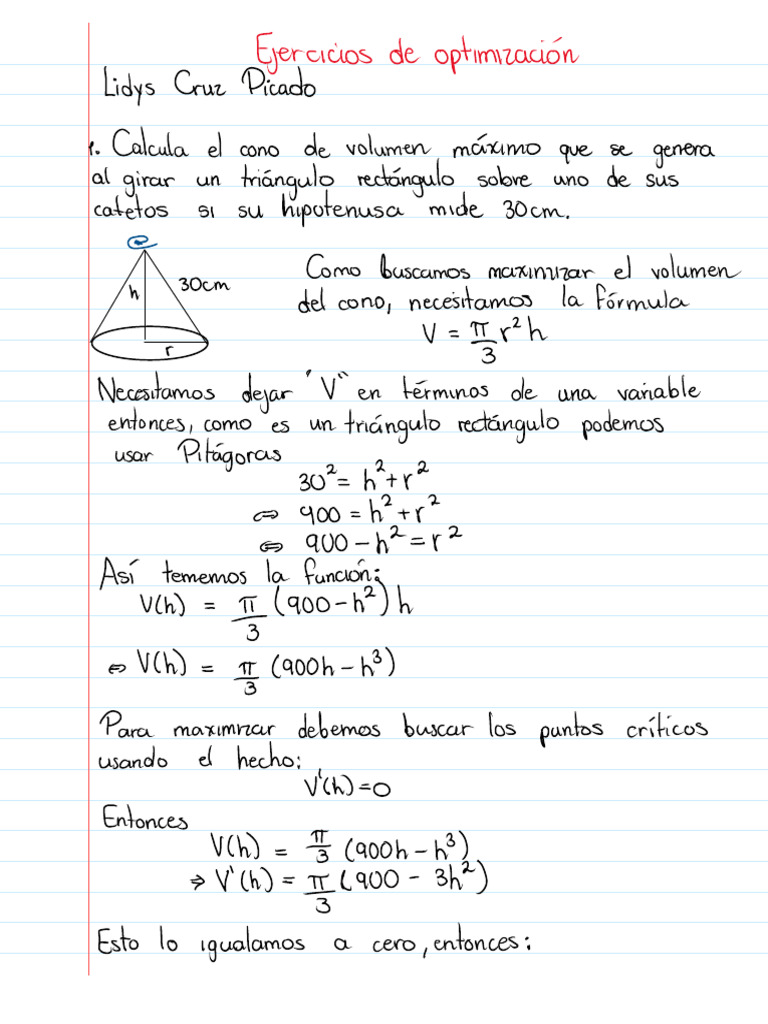 Ejercicios de optimización
Lidys Cruz Picado
1. Calcula el cono de volumen máximo que se genera
al girar un triángulo rectángulo sobre uno de sus
catetos si su hipotenusa mide 30cm.
h
30cm
r
Como buscamos maximizar el volumen
del cono, necesitamos la fórmula
V = π/3 r² h
Necesitamos dejar "V" en términos de una variable
entonces, como es un triángulo rectángulo podemos
usar Pitágoras
30² = h² + r²
⇔ 900 = h² + r²
⇔ 900 - h² = r²
Así tememos la función:
V(h) = π/3 (900 - h²) h
⇔ V(h) = π/3 (900h - h³)
Para maximizar debemos buscar los puntos críticos
usando el hecho:
V'(h) = 0
Entonces
V(h) = π/3 (900h - h³)
⇒ V'(h) = π/3 (900 - 3h²)
Esto lo igualamos a cero, entonces: